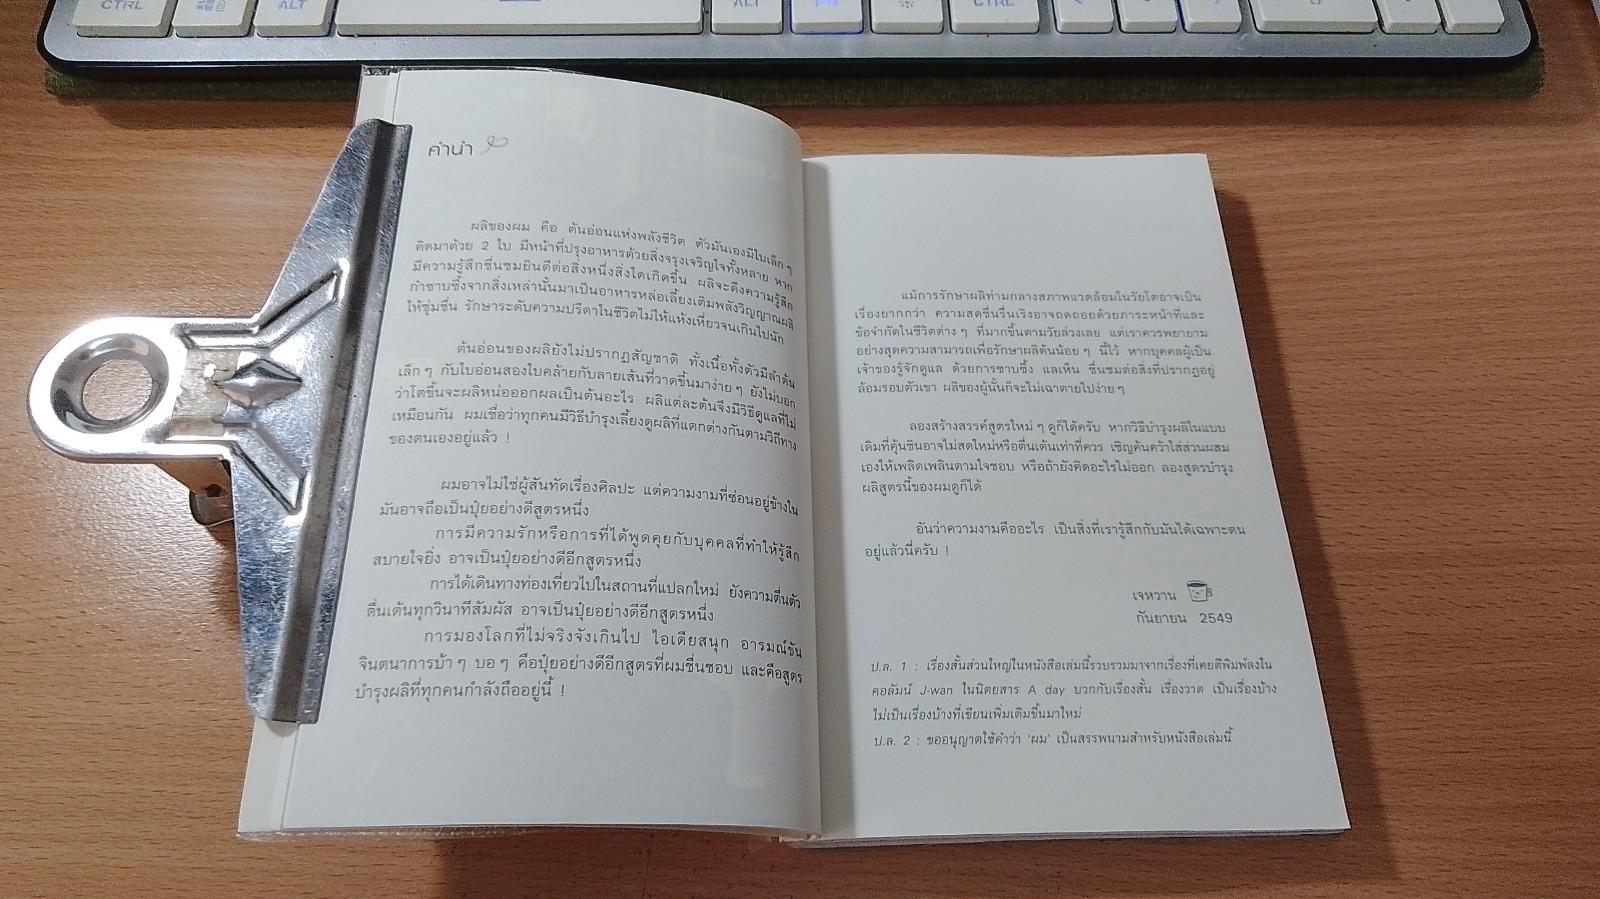 CTRL
ALT
ALT
FN
CTRL
คำนำ
ผลิของผม คือ ต้นอ่อนแห่งพลังชีวิต ตัวมันเองมีใบเล็กๆ
ติดมาด้วย 2 ใบ มีหน้าที่ปรุงอาหารด้วยสิ่งจรุงเจริญใจทั้งหลาย หาก
มีความรู้สึกชื่นชมยินดีต่อสิ่งหนึ่งสิ่งใดเกิดขึ้น ผลิจะดึงความรู้สึก
กำซาบซึ้งจากสิ่งเหล่านั้นมาเป็นอาหารหล่อเลี้ยงเติมพลังวิญญาณผลิ
ให้ชุ่มชื่น รักษาระดับความปรีดาในชีวิตไม่ให้แห้งเหี่ยวจนเกินไปนัก
ต้นอ่อนของผลิยังไม่ปรากฏสัญชาติ ทั้งเนื้อทั้งตัวมีลำต้น
เล็กๆ กับใบอ่อนสองใบคล้ายกับลายเส้นที่วาดขึ้นมาง่ายๆ ยังไม่บอก
ว่าโตขึ้นจะผลิหน่อออกผลเป็นต้นอะไร ผลิแต่ละต้นจึงมีวิธีดูแลที่ไม่
เหมือนกัน ผมเชื่อว่าทุกคนมีวิธีบำรุงเลี้ยงดูผลิที่แตกต่างกันตามวิถีทาง
ของตนเองอยู่แล้ว !
ผมอาจไม่ใช่ผู้สันทัดเรื่องศิลปะ แต่ความงามที่ซ่อนอยู่ข้างใน
มันอาจถือเป็นปุ๋ยอย่างดีสูตรหนึ่ง
การมีความรักหรือการที่ได้พูดคุยกับบุคคลที่ทำให้รู้สึก
สบายใจยิ่ง อาจเป็นปุ๋ยอย่างดีอีกสูตรหนึ่ง
การได้เดินทางท่องเที่ยวไปในสถานที่แปลกใหม่ ยังความตื่นตัว
ตื่นเต้นทุกวินาทีสัมผัส อาจเป็นปุ๋ยอย่างดีอีกสูตรหนึ่ง
การมองโลกที่ไม่จริงจังเกินไป ไอเดียสนุก อารมณ์ขัน
จินตนาการบ้าๆ บอๆ คือปุ๋ยอย่างดีอีกสูตรที่ผมชื่นชอบ และคือสูตร
บำรุงผลิที่ทุกคนกำลังถืออยู่นี้ !
แม้การรักษาผลิท่ามกลางสภาพแวดล้อมในวัยโตอาจเป็น
เรื่องยากกว่า ความสดชื่นรื่นเริงอาจถดถอยด้วยภาระหน้าที่และ
ข้อจำกัดในชีวิตต่างๆ ที่มากขึ้นตามวัยล่วงเลย แต่เราควรพยายาม
อย่างสุดความสามารถเพื่อรักษาผลิต้นน้อยๆ นี้ไว้ หากบุคคลผู้เป็น
เจ้าของรู้จักดูแล ด้วยการซาบซึ้ง แลเห็น ชื่นชมต่อสิ่งที่ปรากฏอยู่
ล้อมรอบตัวเขา ผลิของผู้นั้นก็จะไม่เฉาตายไปง่ายๆ
ลองสร้างสรรค์สูตรใหม่ๆ ดูก็ได้ครับ หากวิธีบำรุงผลิในแบบ
เดิมที่คุ้นชินอาจไม่สดใหม่หรือตื่นเต้นเท่าที่ควร เชิญค้นคว้าใส่ส่วนผสม
เองให้เพลิดเพลินตามใจชอบ หรือถ้ายังคิดอะไรไม่ออก ลองสูตรบำรุง
ผลิสูตรนี้ของผมดูก็ได้
อันว่าความงามคืออะไร เป็นสิ่งที่เรารู้สึกกับมันได้เฉพาะตน
อยู่แล้วนี่ครับ !
เจหวาน
กันยายน 2549
ป.ล. 1 : เรื่องสั้นส่วนใหญ่ในหนังสือเล่มนี้รวบรวมมาจากเรื่องที่เคยตีพิมพ์ลงใน
คอลัมน์ J-wan ในนิตยสาร A day บวกกับเรื่องสั้น เรื่องวาด เป็นเรื่องบ้าง
ไม่เป็นเรื่องบ้างที่เขียนเพิ่มเติมขึ้นมาใหม่
ป.ล. 2 : ขออนุญาตใช้คำว่า 'ผม' เป็นสรรพนามสำหรับหนังสือเล่มนี้